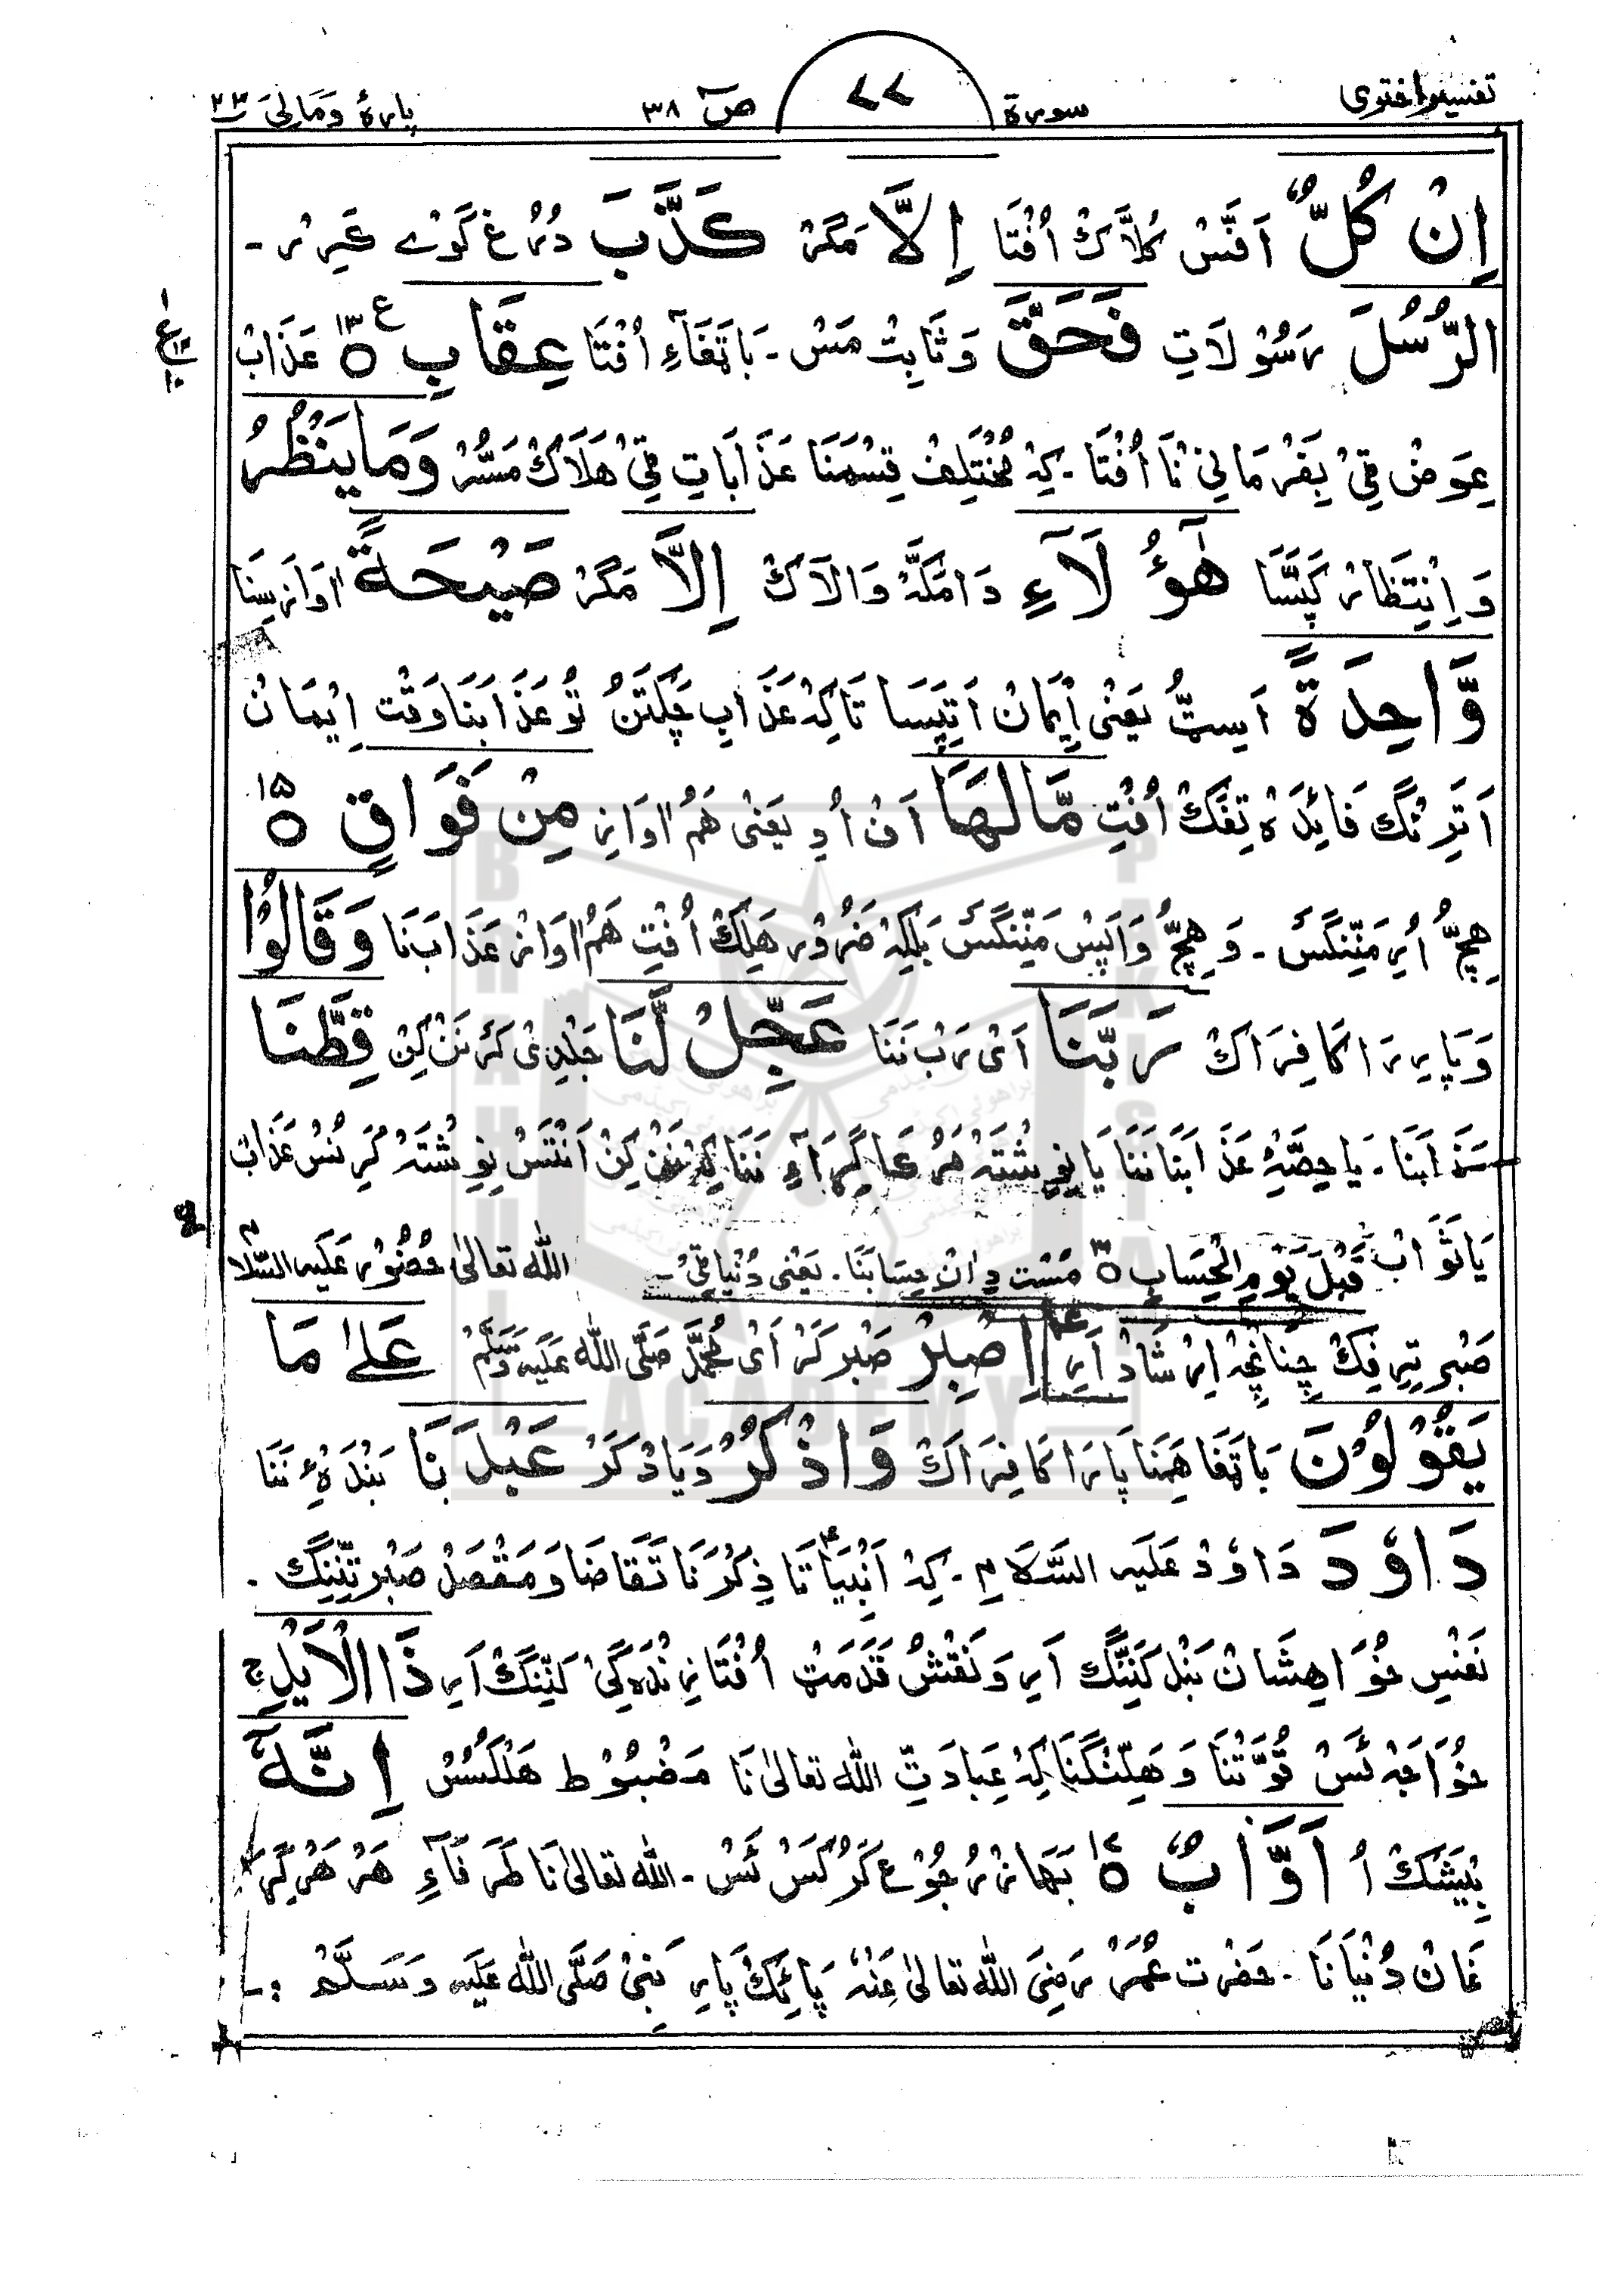 تفسیر اختوی سورة ۷۷ صٓ ۳۸ پارۂ وَمَالِیَ ۲۳
اِنْ كُلٌّ اَفَّسْ كُلَّاكْ اُفْتَا اِلَّا مَگَرْ كَذَّبَ دُرُغ گَوْے كَرِیرْ -
الرُّسُلَ رَسُوْلَاتِ فَحَقَّ وَثَابِتْ مَسْ - بَاتَغَآءِ اُفْتَا عِقَابِ ۱۳ ع عَذَابْ
عِوَضْ قِیْ بِفَرْمَانِیْ نَا اُفْتَا - كِہْ مُخْتَلِفْ قِسْمَنَا عَذَابَاتِ قِیْ هَلَاكْ مَسُّرْ وَمَا يَنْظُرُ
وَاِنْتِظَارْ كَپَّسَا هٰٓؤُلَآءِ دَامَكَّہْ وَالَاكْ اِلَّا مَگَرْ صَيْحَةً اَوَازِسِنَا
وَّاحِدَةً اَسِٹُّ يَعْنِیْ اِيْمَانْ اَتِپَسَا تَاكِہْ عَذَابِ چَكِتَنُ تُوْ عَذَابَنَا وَقْت اِيْمَانْ
اَتِرِنْگ فَائِدَہْ تِفَكْ اُفْتِ مَّا لَهَا اَفْ اُدِ يَعْنِیْ هَمُ اَوَازِ مِنْ فَوَاقٍ ۱۵
هِچُّ اُرِ مَنِّنْگَسْ - وَهِچُّ وَاپَسْ مَنِّنْگَسْ بَلْكِہْ ضَرُوْر هَلِكْ اُفْتِ هَمُ اَوَازْ عَذَابَنَا وَقَالُوْا
وَپَارِرَا كَافِرَاكْ رَبَّنَا اَیْ رَبْ نَنَا عَجِّلْ لَّنَا جَلْدِیْ كَرْ نَنْ كِنْ قِطَّنَا
سَزَابَنَا - يَا حِصَّہِ عَذَابَنَا نَنَا يَا نِوِشْتَہْ نَنَا كِہْ نَنْ كِنْ اَنْتَسْ نِوِشْتَہْ كَرِنُسْ عَذَابْ
يَا ثَوَابْ قَبْلَ يَوْمِ الْحِسَابِ مُسْتِ دِانْ حِسَابَنَا - يَعْنِیْ دُنْيَا قِیْ - اللّٰه تعالیٰ حضُوْر عَلَیہ السَّلَا
صَبْرِ تِرِفِكْ چِنَانْچِہْ اِرْشَادْ اَرِ اِصْبِرْ صَبْر كَرْ اَیْ مُحَمَّدْ صَلَّی اللّٰه عَلَيْہ وَسَلَّمْ عَلٰى مَا
يَقُوْلُوْنَ بَاتَغَا هَمِنَا پَارَا كَافِرَاكْ وَاذْكُرْ وَيَادْ كَرْ عَبْدَنَا بَنْدَہِ نَنَا
دَاوٗدَ دَاوٗدْ عَلَیہ السَّلَام - كِہْ اَنْبِيَا تَا ذِكْرَنَا تَقَاضَا وَمَقْصَدْ صَبْر تِنِّنِنْگ -
نَفْسِ خُوَاهِشَانْ بَنْد كَنِنْگ اَرِ وَنَقْشُ قَدَمَتْ اُفْتَا زِنْدَہ كِیْ كَنِّنْگ اَرِ ذَا الْاَيْدِ ج
خُوَاجَہ ئَسْ قُوَّتْنَا وَهَلِّنْگَنَا كِہْ عِبَادَتِّ اللّٰه تعالیٰ نَا مَضْبُوْط هَلْكُسُسْ اِنَّهٗٓ
بِيْشَكْ اُ اَوَّابٌ ۱۷ بَهَازْ رُجُوْع كَرُكُسْ ئَسْ - اللّٰه تعالیٰ نَا طَرَفَآءِ هَرْ هَرْ گِرَا
غَانْ دُنْيَانَا - حضْرت عُمَرْ رَضِیَ اللّٰه تعالیٰ عَنْہُ پَائِكْ پَارِ نَبِیْ صَلَّی اللّٰه عَلَیہ وَسَلَّمْ :-
BRAHUI ACADEMY PAKISTAN